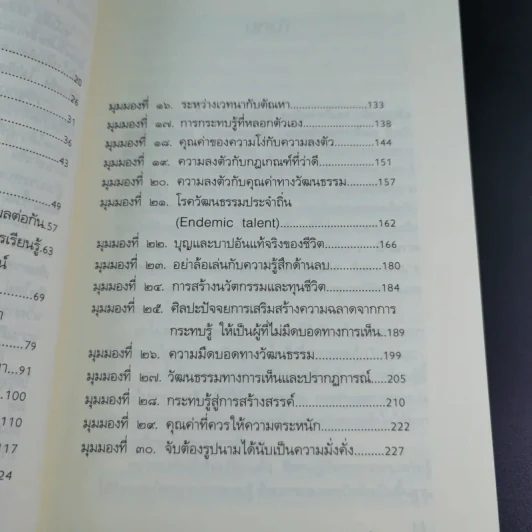 20
26
31
36
43
49
ผลต่อกัน.57
ารเรียนรู้.63
69
79
91
100
110
117
24
มุมมองที่ ๑๖. ระหว่างเวทนากับตัณหา...................133
มุมมองที่ ๑๗. การกระทบรู้ที่หลอกตัวเอง..................138
มุมมองที่ ๑๘. คุณค่าของความโง่กับความลงตัว..........144
มุมมองที่ ๑๙. ความลงตัวกับกฎเกณฑ์ที่ว่าดี..............151
มุมมองที่ ๒๐. ความลงตัวกับคุณค่าทางวัฒนธรรม.......157
มุมมองที่ ๒๑. โรควัฒนธรรมประจำถิ่น
(Endemic talent)......................162
มุมมองที่ ๒๒. บุญและบาปอันแท้จริงของชีวิต............166
มุมมองที่ ๒๓. อย่าล้อเล่นกับความรู้สึกด้านลบ...........180
มุมมองที่ ๒๔. การสร้างนวัตกรรมและทุนชีวิต............184
มุมมองที่ ๒๕. ศิลปะปัจจยการเสริมสร้างความฉลาดจากการ
กระทบรู้ ให้เป็นผู้ที่ไม่มืดบอดทางการเห็น..189
มุมมองที่ ๒๖. ความมืดบอดทางวัฒนธรรม................199
มุมมองที่ ๒๗. วัฒนธรรมทางการเห็นและปรากฏการณ์.....205
มุมมองที่ ๒๘. กระทบรู้สู่การสร้างสรรค์....................210
มุมมองที่ ๒๙. คุณค่าที่ควรให้ความตระหนัก................222
มุมมองที่ ๓๐. จับต้องรูปนามได้นับเป็นความมั่งคั่ง........227